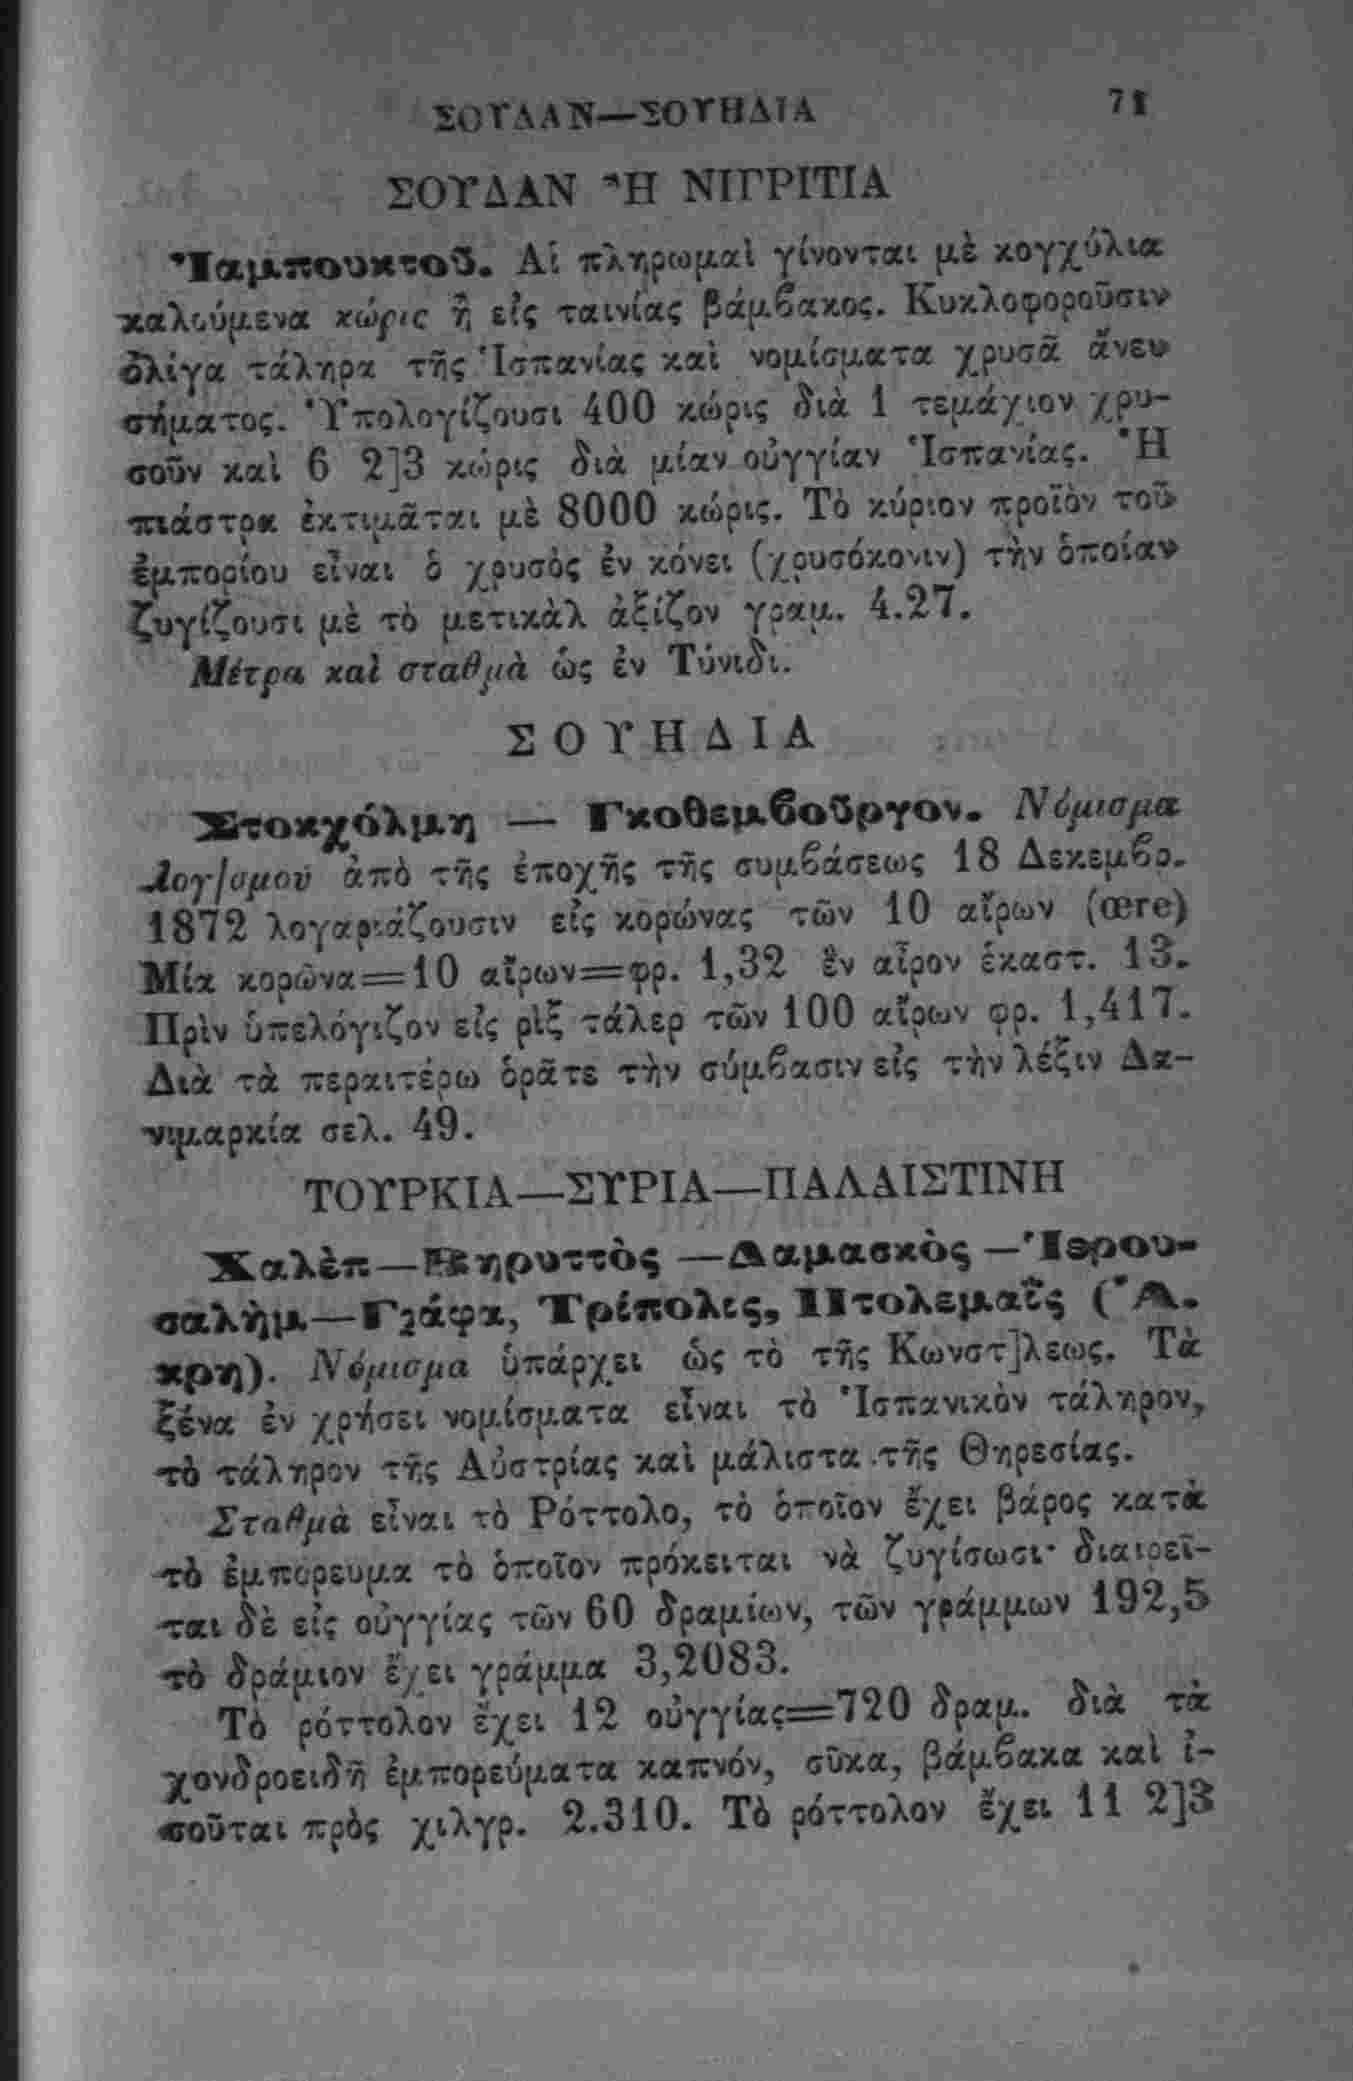 ΣΟΥΔΑΝ—ΣΟΥΗΔΙΑ 71
ΣΟΥΔΑΝ Ἢ ΝΙΓΡΙΤΙΑ
Ἰαμπουκτοῦ. Αἱ πληρωμαὶ γίνονται μὲ κογχύλια
καλούμενα κώρις ἢ εἰς ταινίας βάμβακος. Κυκλοφοροῦσιν
ὀλίγα τάληρα τῆς Ἱσπανίας καὶ νομίσματα χρυσᾶ ἄνευ
σήματος. Ὑπολογίζουσι 400 κώρις διὰ 1 τεμάχιον χρυ-
σοῦν καὶ 6 2]3 κώρις διὰ μίαν οὐγγίαν Ἱσπανίας. Ἡ
πιάστρα ἐκτιμᾶται μὲ 8000 κώρις. Τὸ κύριον προϊὸν τοῦ
ἐμπορίου εἶναι ὁ χρυσὸς ἐν κόνει (χρυσόκονιν) τὴν ὁποίαν
ζυγίζουσι μὲ τὸ μετικὰλ ἀξίζον γραμ. 4.27.
Μέτρα καὶ σταθμὰ ὡς ἐν Τύνιδι.
ΣΟΥΗΔΙΑ
Στοκχόλμη — Γκοθεμβοῦργον. Νόμισμα
λογ]σμοῦ ἀπὸ τῆς ἐποχῆς τῆς συμβάσεως 18 Δεκεμβρ.
1872 λογαριάζουσιν εἰς κορώνας τῶν 10 αἴρων (œre)
Μία κορῶνα=10 αἴρων=φρ. 1,32 ἓν αἶρον ἑκαστ. 13.
Πρὶν ὑπελόγιζον εἰς ρὶξ τάλερ τῶν 100 αἴρων φρ. 1,417.
Διὰ τὰ περαιτέρω ὁρᾶτε τὴν σύμβασιν εἰς τὴν λέξιν Δα-
νιμαρκία σελ. 49.
ΤΟΥΡΚΙΑ—ΣΥΡΙΑ—ΠΑΛΑΙΣΤΙΝΗ
Χαλὲπ—Βηρυττὸς —Δαμασκὸς —Ἱερου-
σαλὴμ—Γιάφα, Τρίπολις, Πτολεμαῒς (Ἄ.
κρη). Νόμισμα ὑπάρχει ὡς τὸ τῆς Κωνστ]λεως. Τὰ
ξένα ἐν χρήσει νομίσματα εἶναι τὸ Ἱσπανικὸν τάληρον,
τὸ τάληρον τῆς Αὐστρίας καὶ μάλιστα τῆς Θηρεσίας.
Σταθμὰ εἶναι τὸ Ρόττολο, τὸ ὁποῖον ἔχει βάρος κατὰ
τὸ ἐμπόρευμα τὸ ὁποῖον πρόκειται νὰ ζυγίσωσι· διαιρεῖ-
ται δὲ εἰς οὐγγίας τῶν 60 δραμίων, τῶν γράμμων 192,5
τὸ δράμιον ἔχει γράμμα 3,2083.
Τὸ ρόττολον ἔχει 12 οὐγγίας=720 δραμ. διὰ τὰ
χονδροειδῆ ἐμπορεύματα καπνόν, σῦκα, βάμβακα καὶ ἰ-
σοῦται πρὸς χιλγρ. 2.310. Τὸ ρόττολον ἔχει 11 2]3